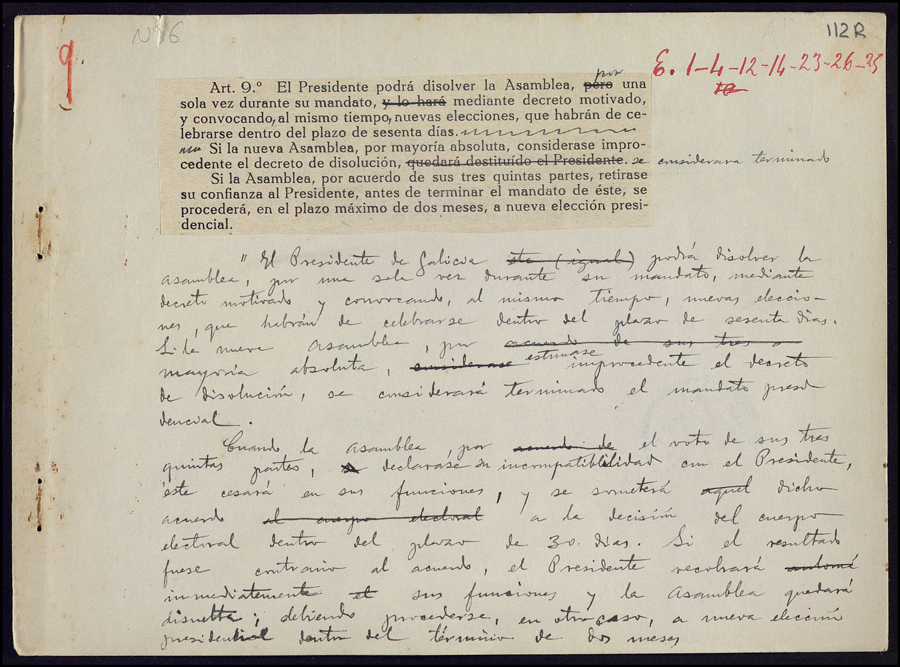 9
Nº 6
112R
E. 1-4-12-14-23-26-25
Art. 9.º El Presidente podrá disolver la Asamblea, pero por una
sola vez durante su mandato, y lo hará mediante decreto motivado,
y convocando, al mismo tiempo, nuevas elecciones, que habrán de ce-
lebrarse dentro del plazo de sesenta días.
Si la nueva Asamblea, por mayoría absoluta, considerase impro-
cedente el decreto de disolución, quedará destituído el Presidente. se considerara terminado
Si la Asamblea, por acuerdo de sus tres quintas partes, retirase
su confianza al Presidente, antes de terminar el mandato de éste, se
procederá, en el plazo máximo de dos meses, a nueva elección presi-
dencial.
"El Presidente de Galicia (igual) podrá disolver la
asamblea, por una sola vez durante su mandato, mediante
decreto motivado y convocando, al mismo tiempo, nuevas eleccio-
nes, que habrán de celebrarse dentro del plazo de sesenta dias.
Si la nueva Asamblea, por acuerdo de sus tres
mayoría absoluta, considerase estimase improcedente el decreto
de disolución, se considerará terminado el mandato presi
dencial.
Cuando la asamblea, por acuerdo de el voto de sus tres
quintas partes, declarase su incompatibilidad con el Presidente,
éste cesará en sus funciones, y se someterá aquel dicho
acuerdo al cuerpo electoral a la decisión del cuerpo
electoral dentro del plazo de 30 dias. Si el resultado
fuese contrario al acuerdo, el Presidente recobrará
inmediatamente el sus funciones y la Asamblea quedará
disuelta; debiendo procederse, en otro caso, a nueva elección
presidencial dentro del término de dos meses